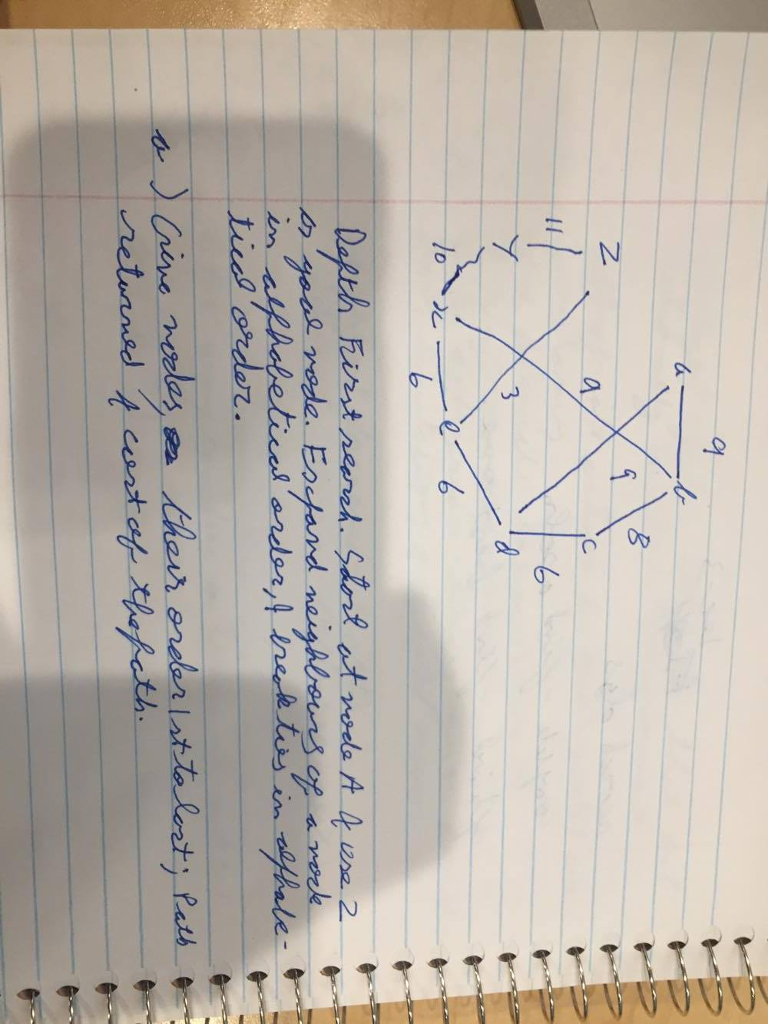 a 9 b
9 9 8
z 3 c
11 6
y d
10 x 6 e 6
Depth First search. Start at node A & use Z
as goal node. Expand neighbours of a node
in alphabetical order, & break ties in alphabe-
tical order.
a) Give nodes, their order 1st to last; Path
returned & cost of the path.